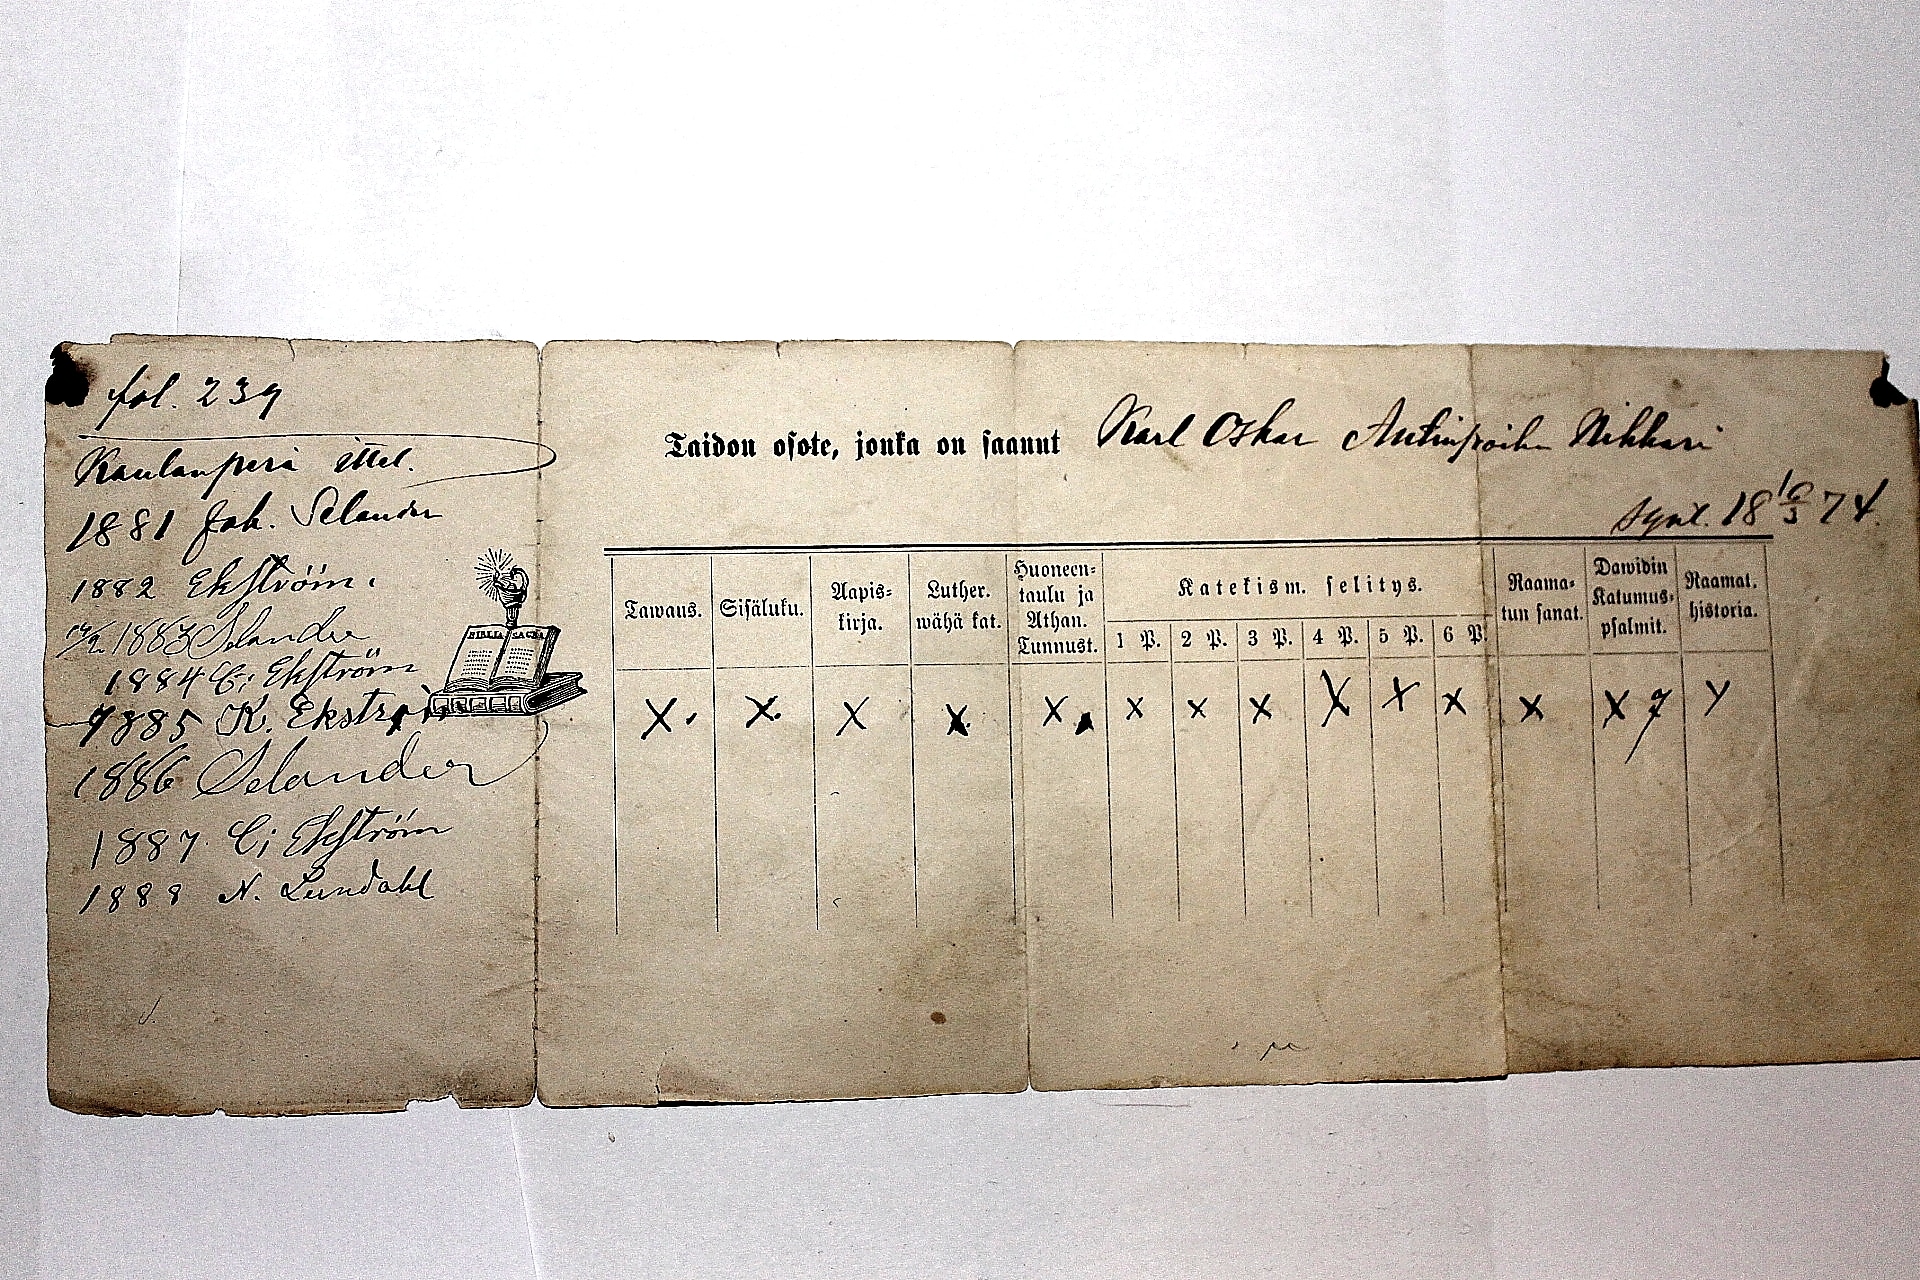 fol. 239
Kaulanperä ittel.
1881 Joh. Selander
1882 Ekström.
1883 Selander
1884 C; Ekström
1885 K. Ekström
1886 Selander
1887. C; Ekström
1888 N. Lundahl
BIBLIA SACRA
Taidon osote, jonka on saanut Karl Oskar Antinpoika Nikkari
synt. 18 16/3 74.
Tawaus.
Sisäluku.
Aapis-
kirja.
Luther.
wähä kat.
Huoneen-
taulu ja
Athan.
Tunnust.
Katekism. selitys.
1 P. 2 P. 3 P. 4 P. 5 P. 6 P.
Raama-
tun sanat.
Dawidin
Katumus-
psalmit.
Raamat.
historia.
X. X. X X X X X X X X X X X 7 X